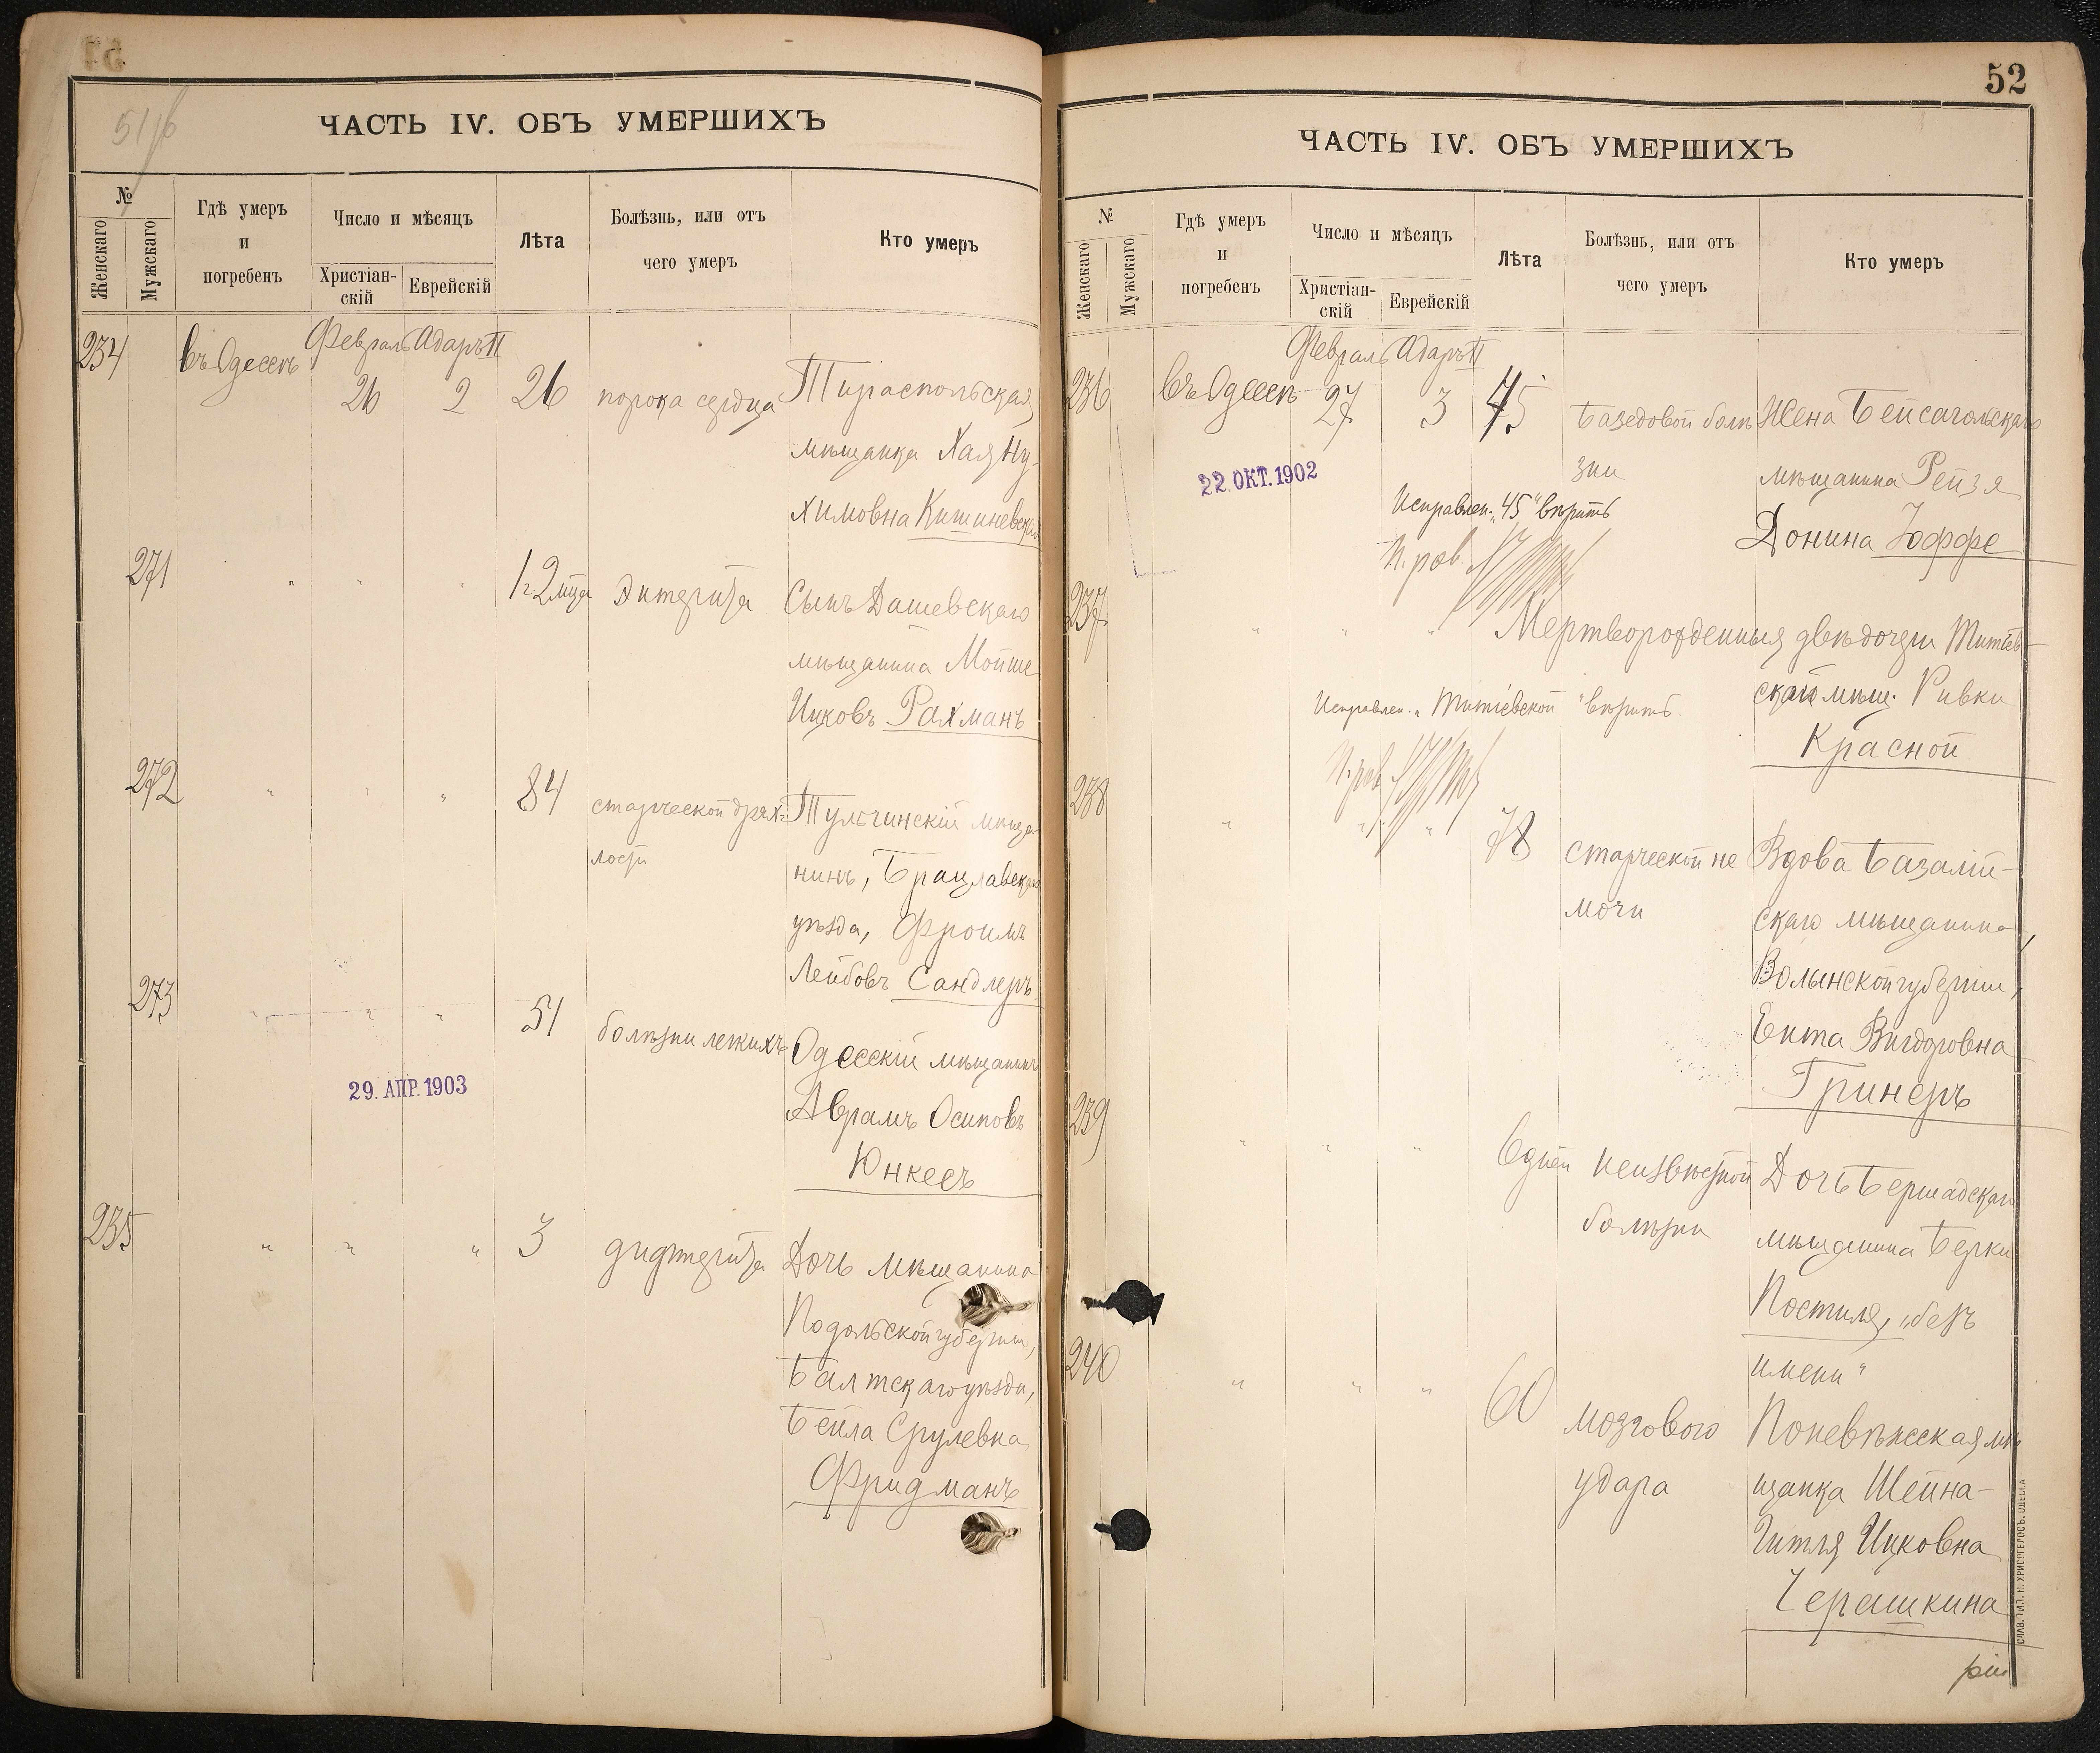 51/б
ЧАСТЬ IV. ОБЪ УМЕРШИХЪ
№
Женскаго
Мужскаго
Гдѣ умеръ
и
погребенъ
Число и мѣсяцъ
Христіан-
скій
Еврейскій
Лѣта
Болѣзнь, или отъ
чего умеръ
Кто умеръ
234
въ Одессѣ
Февраль
Адаръ II
26
2
26
порока сердца
Тираспольская
мѣщанка Хая Ну-
химовна Кишиневская
271
" " "
1 г. 2 м̃ца
Энтерита
Сынъ Дашевскаго
мѣщанина Мойше
Ицковъ Рахманъ
272
" " "
84
старческой дрях-
лости
Тульчинскій мѣща-
нинъ, Брацлавскаго
уѣзда, Фроимъ
Лейбовъ Сандлеръ
273
" " "
51
болѣзни легкихъ
29. АПР. 1903
Одесскій мѣщанинъ
Аврамъ Осиповъ
Юнкесъ
235
" " "
3
дифтерита
Дочь мѣщанина
Подольской губерніи,
Балтскаго уѣзда,
Бейла Срулевна
Фридманъ
52
ЧАСТЬ IV. ОБЪ УМЕРШИХЪ
№
Женскаго
Мужскаго
Гдѣ умеръ
и
погребенъ
Число и мѣсяцъ
Христіан-
скій
Еврейскій
Лѣта
Болѣзнь, или отъ
чего умеръ
Кто умеръ
236
въ Одессѣ
Февраль
Адаръ II
27
3
45
Базедовой болѣ
зни
Жена Бейсагольскаго
мѣщанина Рейзя
Донина Іоффе
22 ОКТ. 1902
Исправлен. "45" вѣрить
П. рав.
237
" " "
Мертворожденныя двѣ дочери Титіев-
ской мѣщ. Ривки
Красной
Исправлен. "Титіевской" вѣрить.
П. рав.
238
" " "
78
старческой не
мочи
Вдова Базалій-
скаго мѣщанина,
Волынской губерніи,
Ента Вигдоровна
Гринеръ
239
" " "
6 дней
неизвѣстной
болѣзни
Дочь Бершадскаго
мѣщанина Берки
Постиля, "безъ
имени"
240
" " "
60
мозгового
удара
Поневѣжская мѣ
щанка Шейна-
Гитля Ицковна
Черашкина
СЛАВ. ТИП. Н. ХРИСОГЕЛОСЪ. ОДЕССА